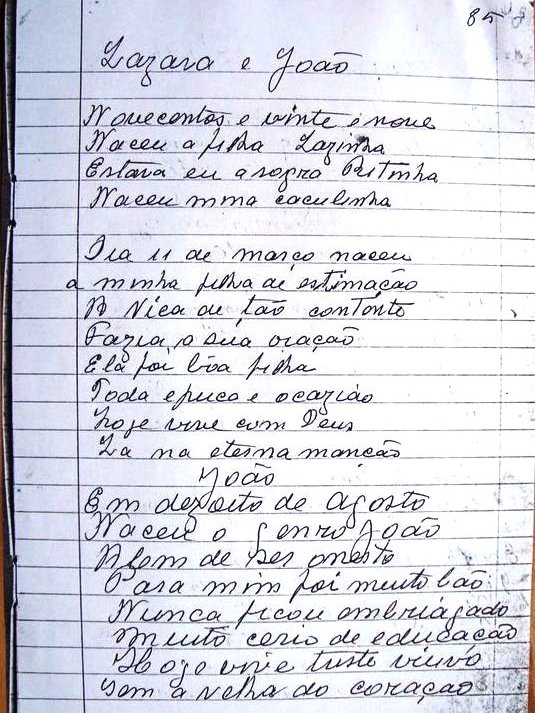 85
Lazara e João
Novecentos e vinte e nove
Naceu a filha Lazinha
Estava eu a sogra Ritinha
Naceu mma caculinha
Dia 11 de março naceu
a minha filha de estimação
A Nica de tão contente
Fazia a sua oração
Ela foi bôa filha
Toda epuca e ocazião
Hoje vive com Deus
La na eterna manção
João
Em dezoito de agosto
Naceu o Genro João
Alem de ser onesto
Para mim foi muito bão
Nunca ficou embriagado
Muito cerio de educação
Hoje vive triste viuvo
Sem a velha do coração